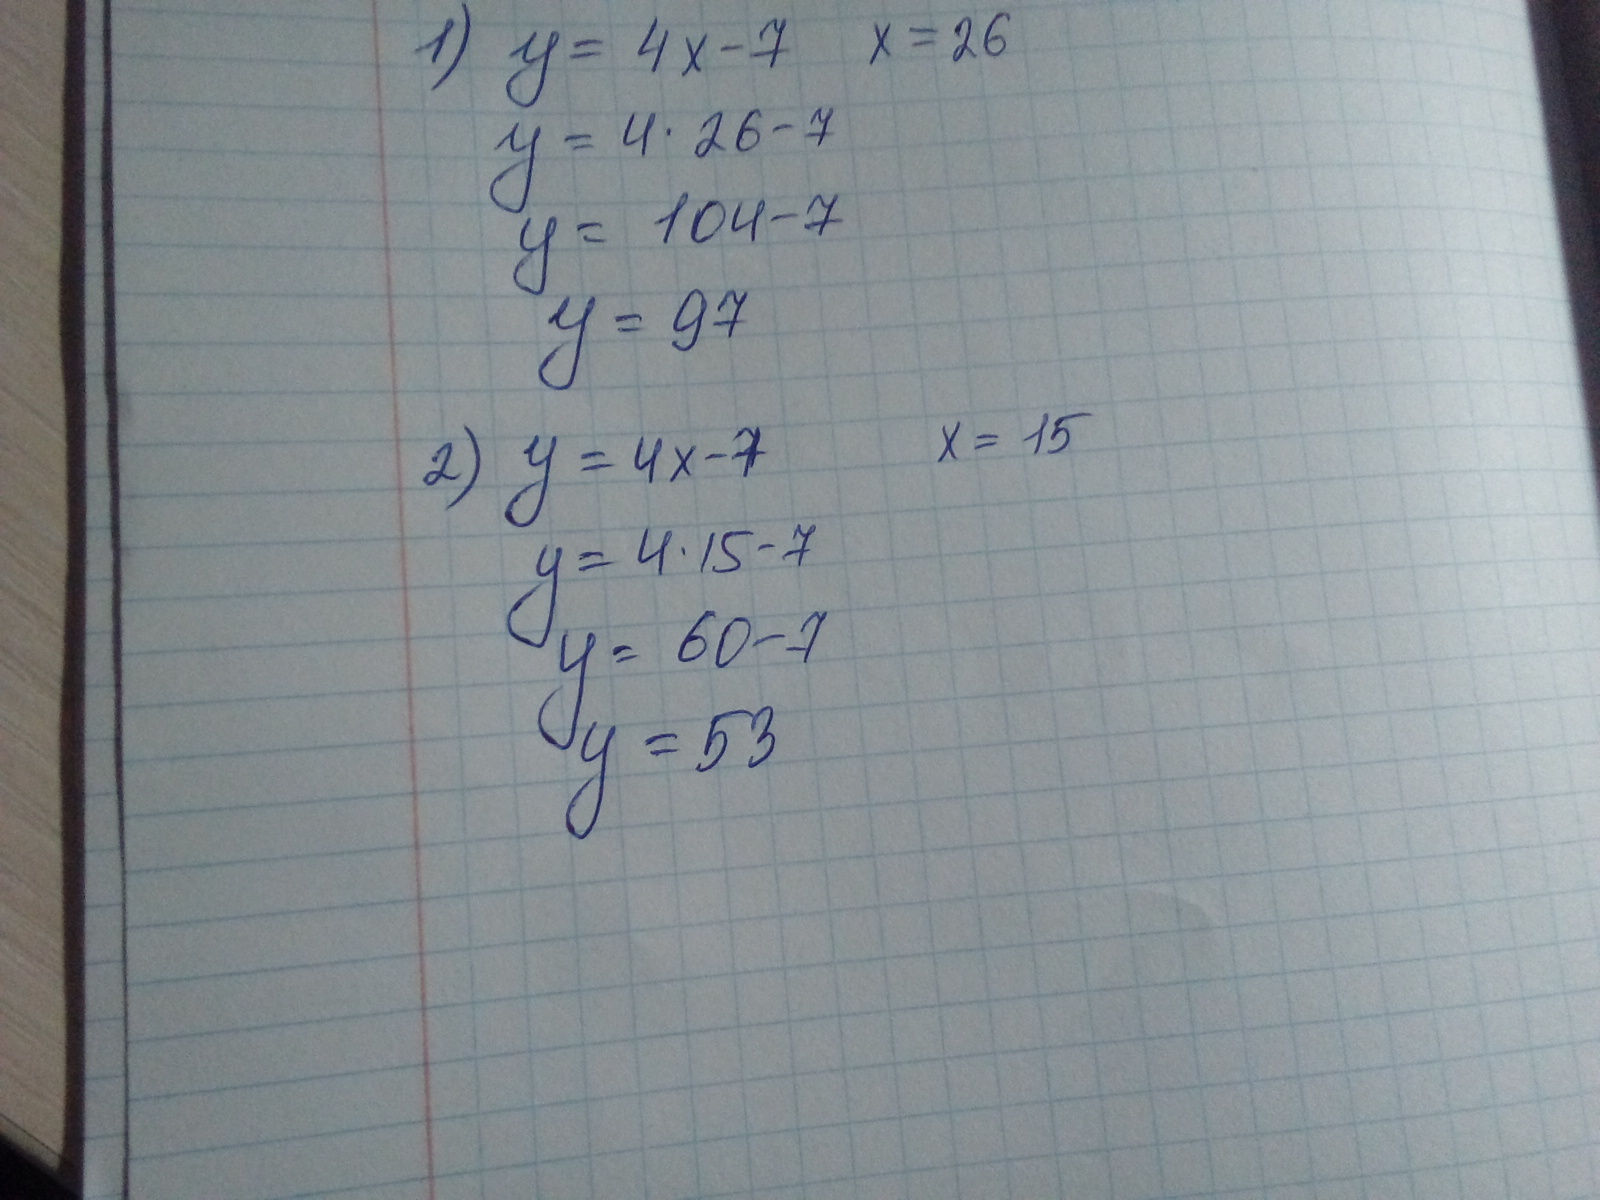 1) y = 4x - 7 x = 26
y = 4 · 26 - 7
y = 104 - 7
y = 97
2) y = 4x - 7 x = 15
y = 4 · 15 - 7
y = 60 - 7
y = 53